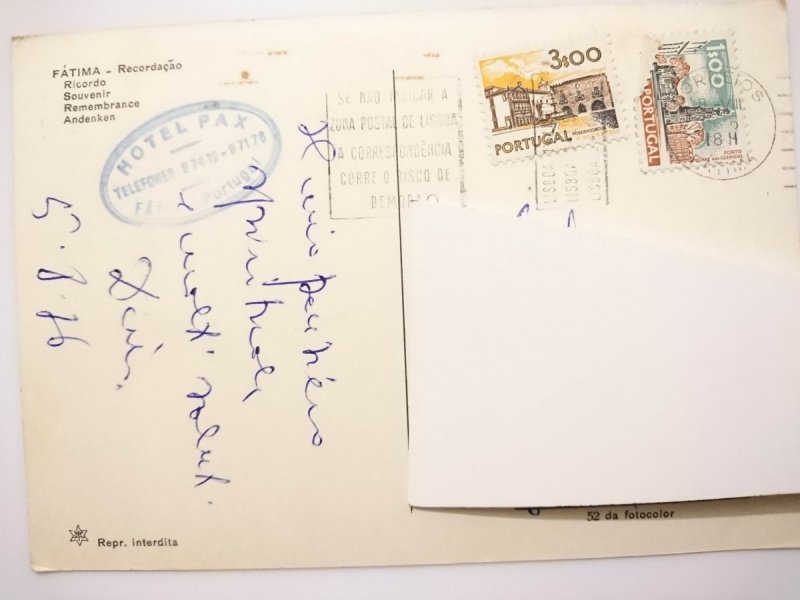 FÁTIMA - Recordação
Ricordo
Souvenir
Remembrance
Andenken
HOTEL PAX
TELEFONES 97412 - 97176
Portugal
SE NÃO INDICAR A
ZONA POSTAL DE LISBOA
A CORRESPONDÊNCIA
CORRE O RISCO DE
LISBOA
LISBOA
LISBOA
3$00
PORTUGAL
1$00
PORTUGAL
PORTO
18 H
pensiero
spirituale
e molti saluti.
5.8.76
52 da fotocolor
Repr. interdita